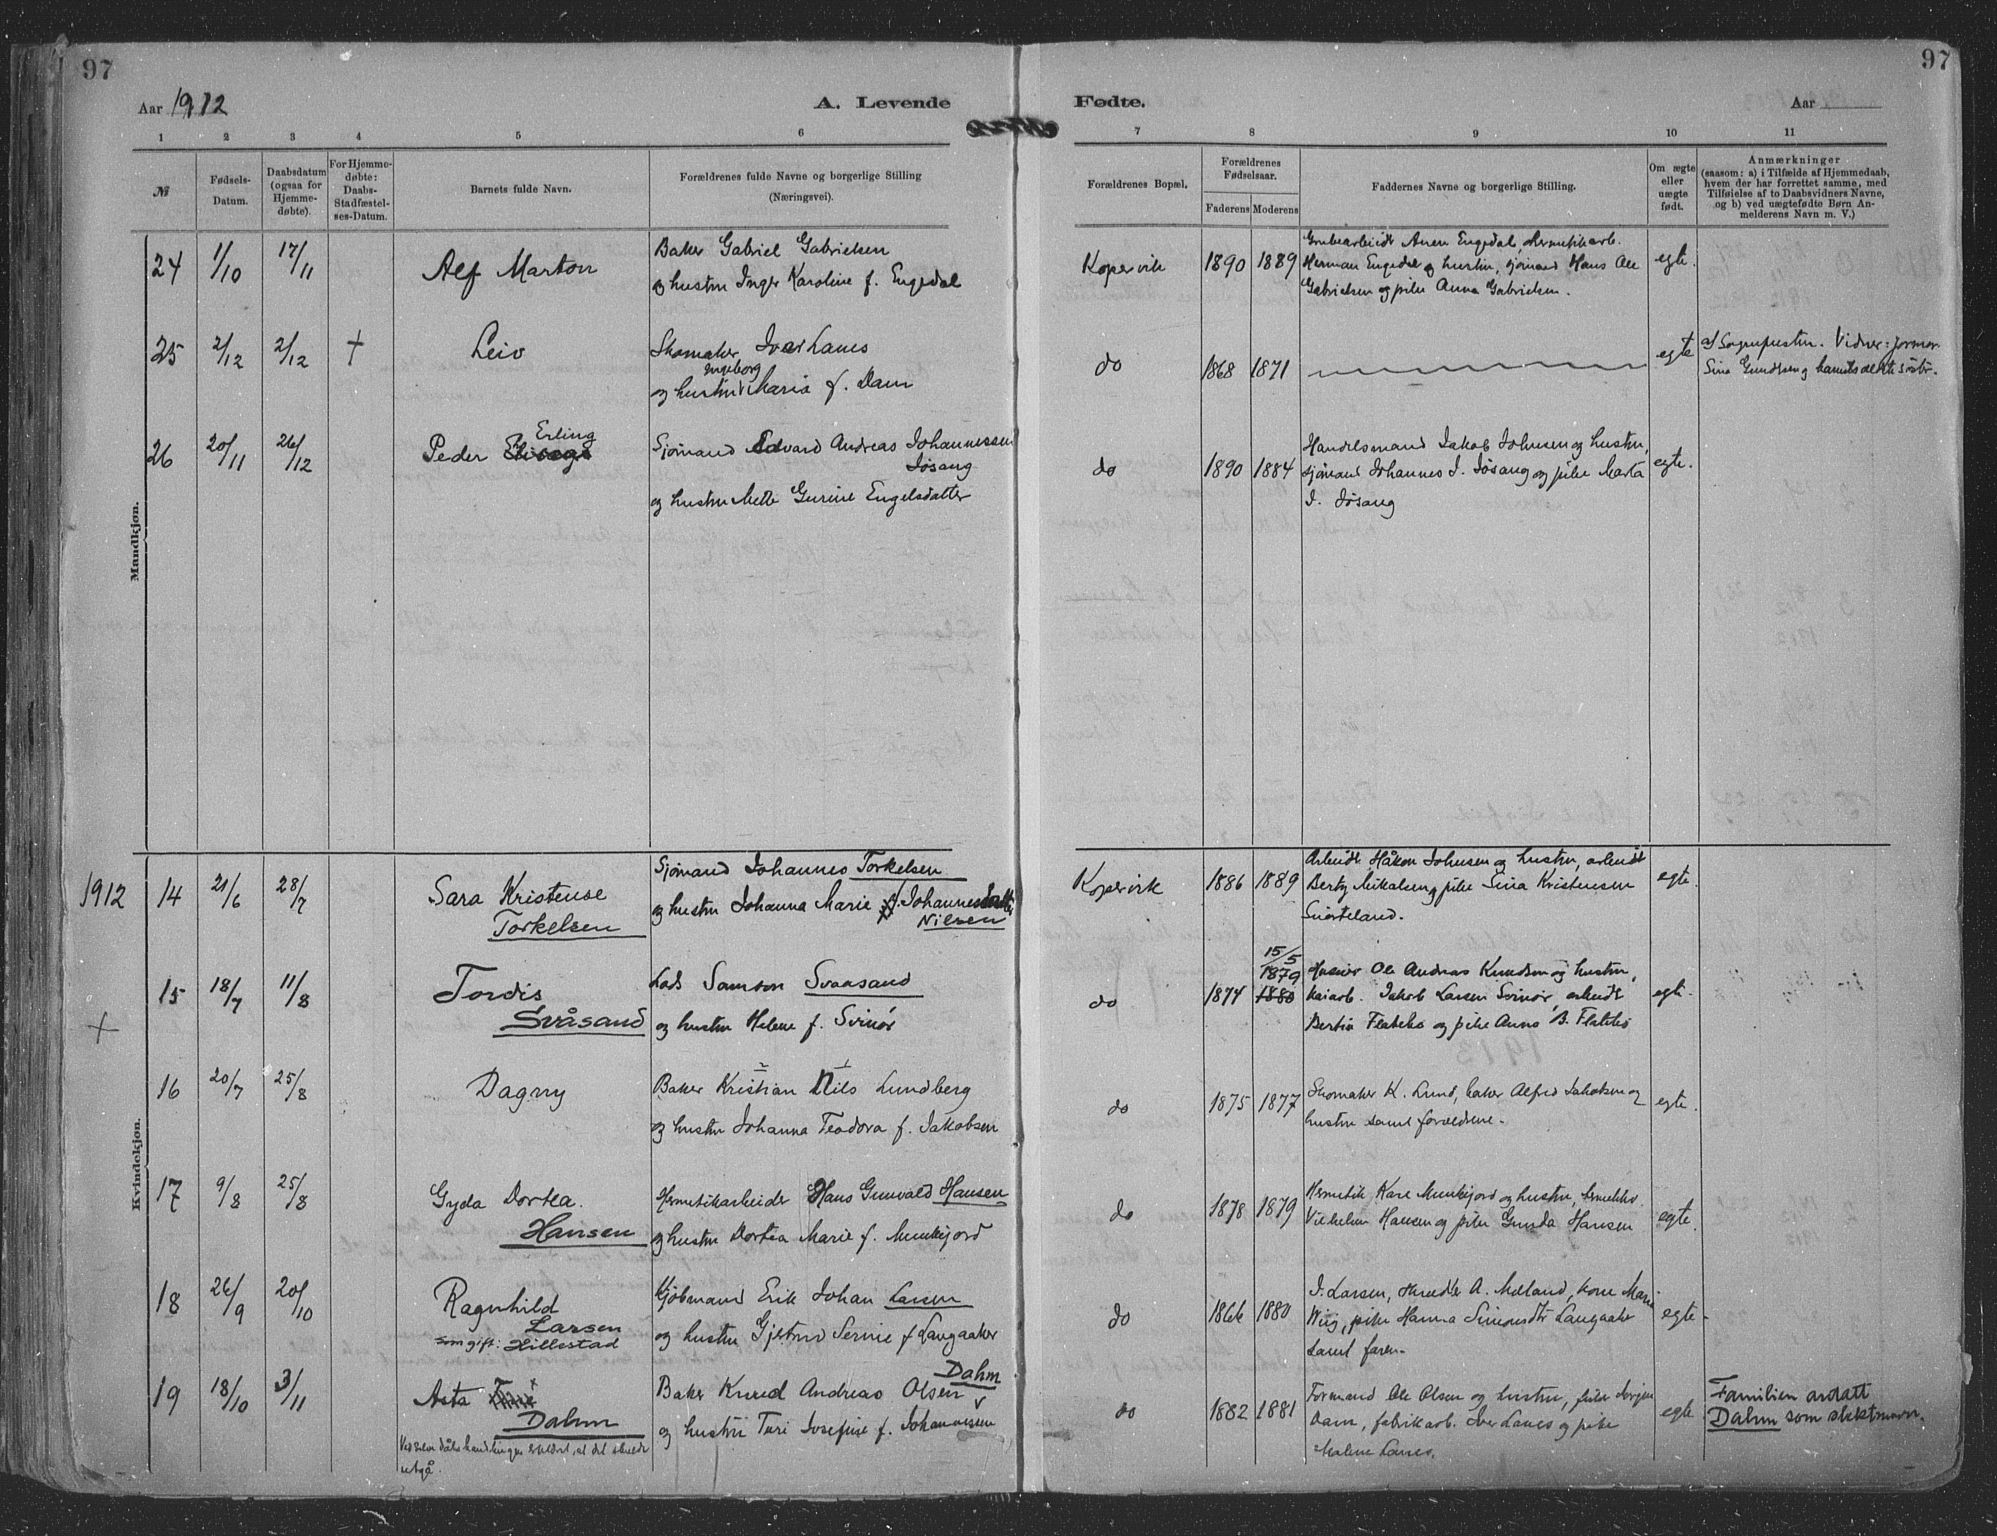 97
97
Aar 1912
A. Levende
Fødte.
Aar
1 2 3 4 5 6 7 8 9 10 11
№
Fødsels-
Datum.
Daabsdatum
(ogsaa for
Hjemme-
døbte).
For Hjemme-
døbte:
Daabs-
Stadfæstel-
ses-Datum.
Barnets fulde Navn.
Forældrenes fulde Navne og borgerlige Stilling
(Næringsvei).
Forældrenes Bopæl.
Forældrenes
Fødselsaar.
Faderens Moderens
Faddernes Navne og borgerlige Stilling.
Om ægte
eller
uægte
født.
Anmærkninger
(saasom: a) i Tilfælde af Hjemmedaab,
hvem der har forrettet samme, med
Tilføielse af to Daabsvidners Navne,
og b) ved uægtefødte Børn An-
melderens Navn m. V.)
Mandkjøn.
24 1/10 17/11 Alf Marton
Baker Gabriel Gabrielsen
og hustru Inger Karoline f. Engedal
Kopervik 1890 1889
Grubearbeidr Anen Engedal, Hermetikarb.
Herman Engedal og hustru, sjømand Hans Ole
Gabrielsen og pike Anna Gabrielsen.
egte.
25 2/12 2/12 + Leiv
Skomaker Iver Lanes
Ingeborg
og hustru Maria f. Dam
do 1868 1871
+
egte
a/ Sogneprestin. Vidner: jormor
Sina Gundsen og barnets ældste søster.
26 20/11 26/12
Erling
Peder
Sjømand Edvard Andreas Johannessen
Jøsang
og hustru Mette Gurine Engelsdatter
do 1890 1884
Handelsmand Jakob Johnsen og hustru,
sjømand Johannes J. Jøsang og pike Marta
J. Jøsang
egte.
Kvindekjøn.
1912 14 21/6 28/7
Sara Kristense
Torkelsen
Sjømand Johannes Torkelsen
og hustru Johanna Marie f. Johannesdatter
Nilsen
Kopervik 1886 1889
Arbeidr. Håkon Johnsen og hustru, arbeidr
Berty Mikalsen og pike Sina Kristensen
Snørteland.
egte.
+
15 18/7 11/8
Tordis
Svåsand
Lods Samson Svaasand
og hustru Helene f. Svinør
do 1874
15/5
1879
1880
Ole Andreas Knudsen og hustru,
kaiarb. Jakob Larsen Svinør, arbeidr
Bertin Flatebø og pike Anna B. Flatebø
egte.
16 20/7 25/8 Dagny
Baker Kristian Nils Lundberg
og hustru Johanna Teodora f. Jakobsen
do 1875 1877
Skomaker K. Lund, baker Alfred Jakobsen og
hustru samt forældrene.
egte.
17 9/8 25/8
Gyda Dortea.
Hansen
Hermetikarbeider Hans Gunvald Hansen
og hustru Dortea Marie f. Munkejord
do 1878 1879
Hermetik Kare Munkejord og hustru,
Vilhelm Hansen og pike Gunda Hansen
egte.
18 26/9 20/10
Ragnhild
Larsen
som gift: Hillestad
Kjøbmand Erik Johan Larsen
og hustru Gjetrud Serine f. Langaaker
do 1866 1880
J. Larsen, A. Mæland, kone Marie
Wiig, pike Hanna Simonsdtr Langaaker
samt faren.
egte.
19 18/10 3/11
Asta
Dahm
Ved selve dåbshandlingen erklært, at det skulde
utgå.
Dahm
Baker Knud Andreas Olsen
og hustru Turi Josefine f. Johannesen
do 1882 1881
Formand Ole Olsen og hustru, pike Jorgine
Dam, fabrikarb. Iver Lanes og pike
Malene Lanes.
egte
Familien antatt
Dahm som slektsnavn.